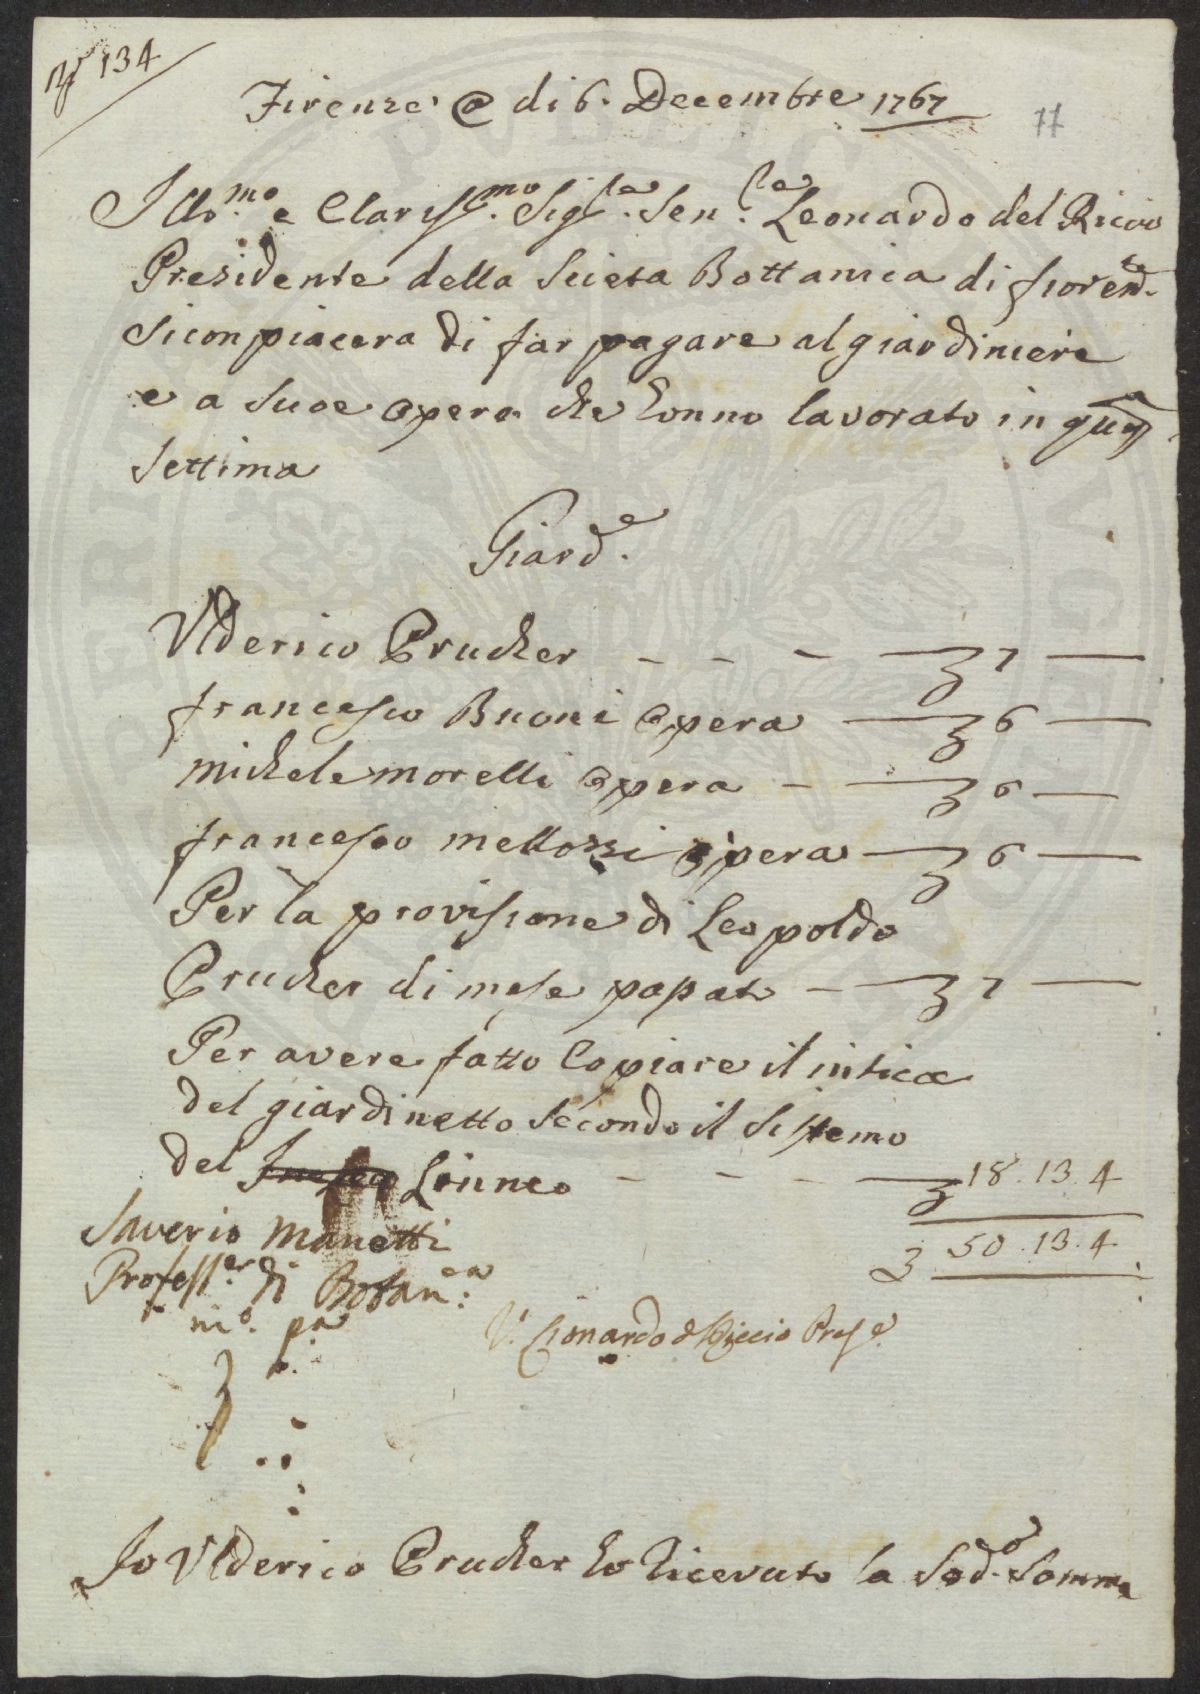 N° 134
Firenze @ di 6. Decembre 1767
77
Illo.mo e Clariss.mo Sig.re Sen.re Leonardo del Ricio
Presidente della Scieta Bottanica di fioren.
Si conpiacera di far pagare al giardiniere
e a sue opere che honno lavorato in
Settima
Giard.e
Ulderico Prucher - - - 7 —
francesco Buoni opera — 6 —
michele morelli opera — 6 —
francesco mellossi opera — 6 —
Per la provisione di Leopoldo
Prucher di mese papato — 7 —
Per avere fatto Copiare il intice
del giardinetto Secondo il Sistemo
del Linneo - - - 18.13.4
50.13.4
Saverio Manetti
Profess.er di Botan.ca
m.o pa
V. Lionardo d Riccio Pres.e
Io Ulderico Prucher ho Ricevuto la Sod.a Somma